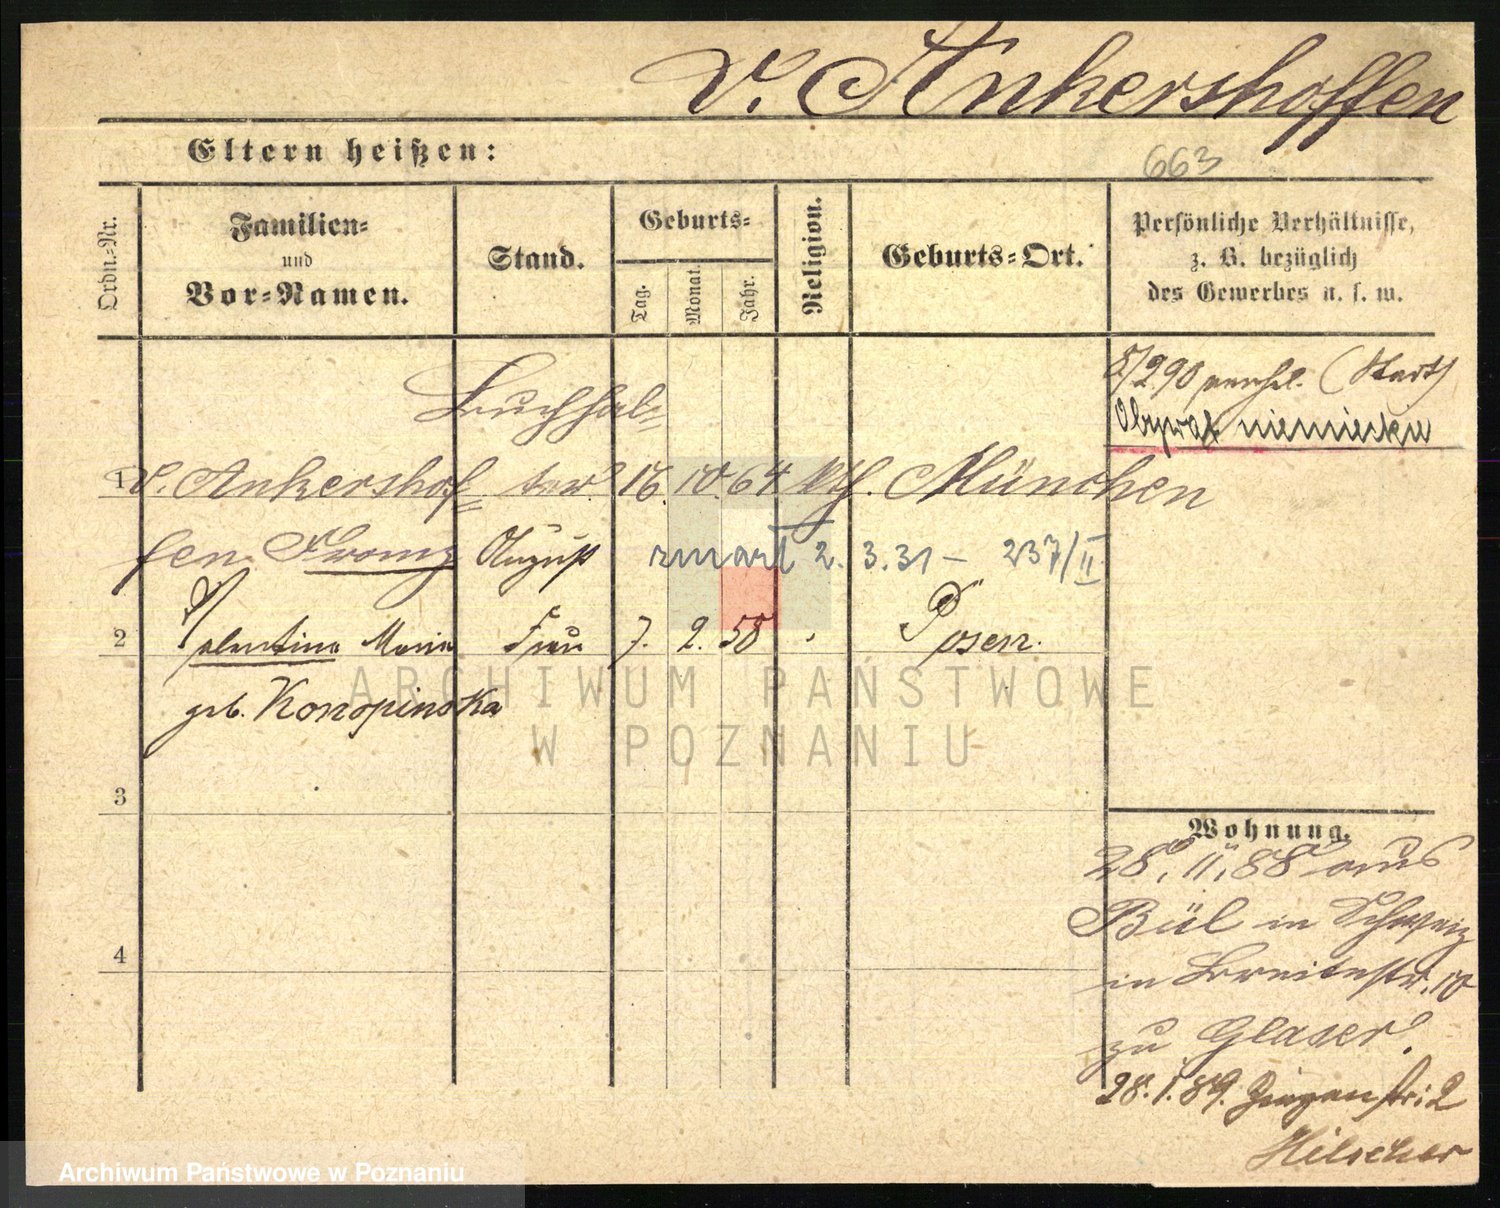 v. Ankershoffen
Eltern heißen:
663
Ordn.-Nr.
Familien-
und
Vor-Namen.
Stand.
Geburts-
Tag.
Monat.
Jahr.
Religion.
Geburts-Ort.
Persönliche Verhältnisse,
z. B. bezüglich
des Gewerbes u. s. w.
2/290 verehl. (Stadt)
Obywat. niemieckie
Buchhal-
1 v. Ankershof- ter 16. 10. 64 kth. München
fen Franz August zmarł 2. 3. 31 – 237/II
2 Valentine Maria Frau 7. 2. 58 Posen.
geb. Konopinska
ARCHIWUM PAŃSTWOWE
W POZNANIU
3
4
Wohnung.
28. 11. 88 aus
Bül in Schweiz
in Breitestr. 10
zu Glaser.
28. 1. 89. str. 2
Hilscher
Archiwum Państwowe w Poznaniu